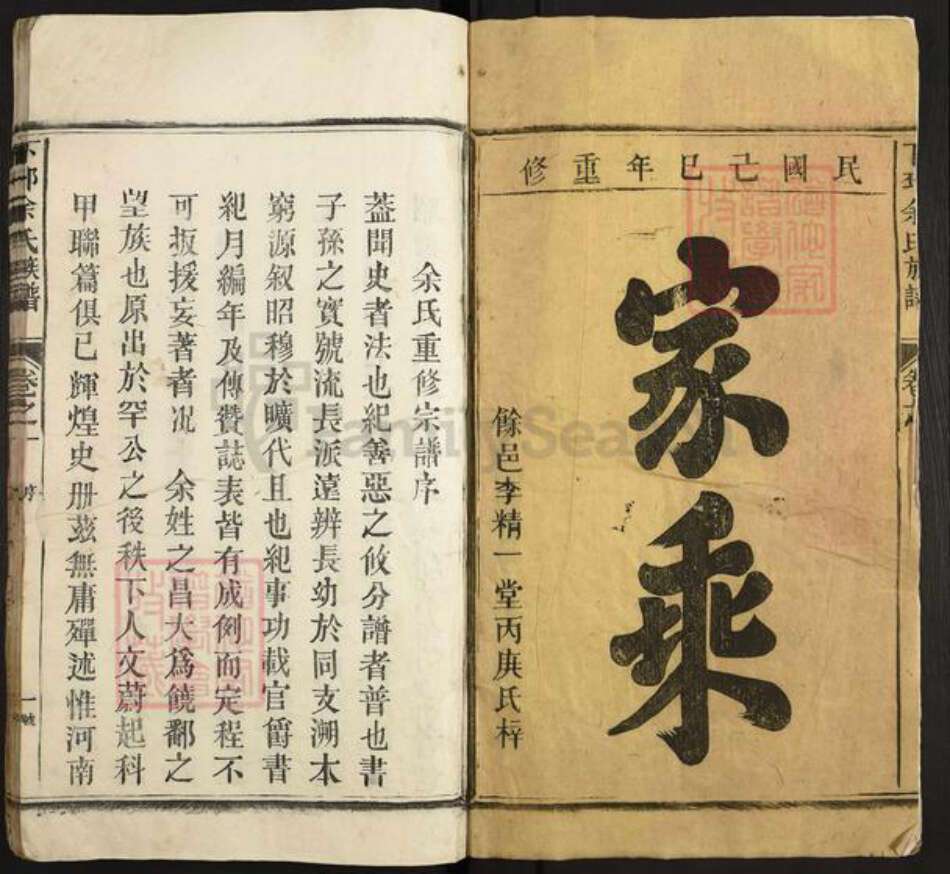 民國己巳年重修
家乘
餘邑李精一堂丙庚氏梓
余氏重修宗譜序
蓋聞史者法也紀善惡之攸分譜者普也書
子孫之實號流長派遠辨長幼於同支溯本
窮源叙昭穆於曠代且也紀事功載官爵書
紀月編年及傳贊誌表皆有成例而定程不
可扳援妄著者况 余姓之昌大爲饒鄱之
望族也原出於罕公之後秩下人文蔚起科
甲聯篇俱已輝煌史册兹無庸殫述惟河南
余氏族譜
卷之一
序
一號
FamilySearch